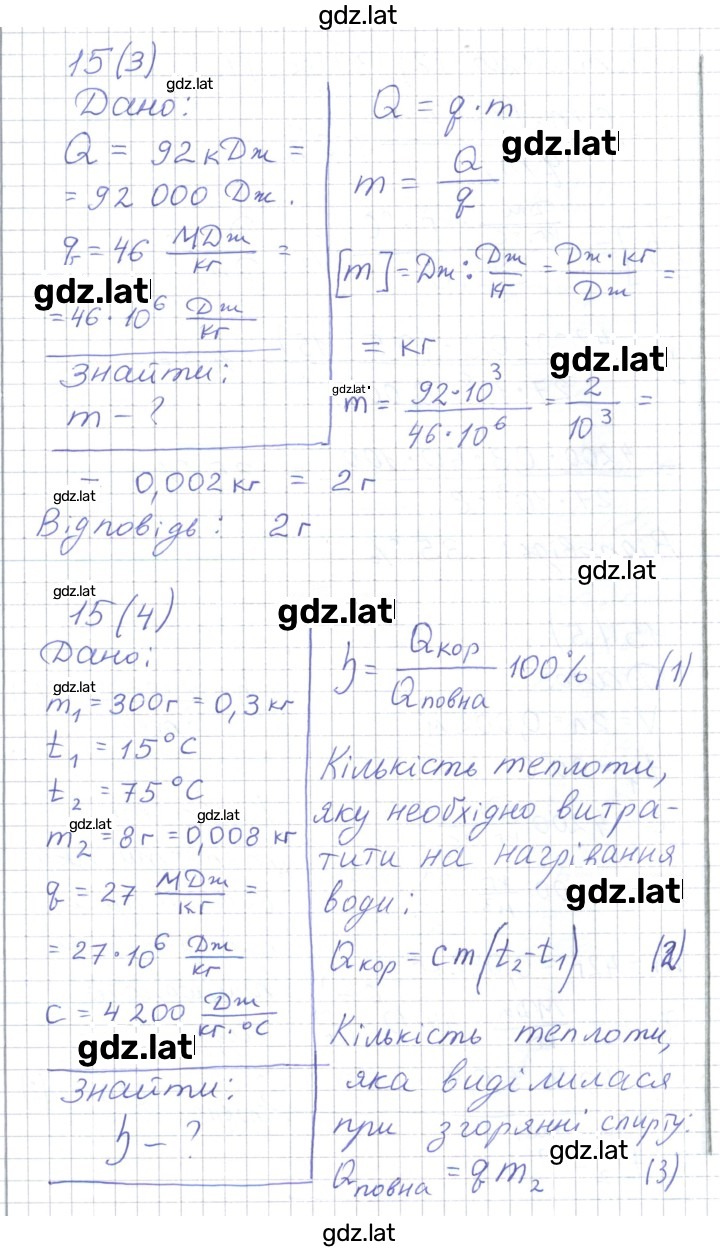 gdz.lat
15(3)
gdz.lat
Дано:
Q = 92 кДж =
= 92 000 Дж.
q = 46 МДж/кг =
gdz.lat
= 46·10⁶ Дж/кг
Знайти:
m - ?
Q = q·m
gdz.lat
m = Q/q
[m] = Дж : Дж/кг = Дж·кг/Дж =
= кг
gdz.lat
gdz.lat
m = 92·10³/46·10⁶ = 2/10³ =
= 0,002 кг = 2 г
gdz.lat
Відповідь: 2 г
gdz.lat
gdz.lat
15(4)
gdz.lat
Дано:
gdz.lat
m₁ = 300 г = 0,3 кг
t₁ = 15 °C
t₂ = 75 °C
gdz.lat
gdz.lat
m₂ = 8 г = 0,008 кг
q = 27 МДж/кг =
= 27·10⁶ Дж/кг
c = 4 200 Дж/кг·°C
gdz.lat
Знайти:
η - ?
η = Qкор/Qповна 100% (1)
Кількість теплоти,
яку необхідно витра-
тити на нагрівання
gdz.lat
води:
Qкор = cm(t₂-t₁) (2)
Кількість теплоти,
яка виділилася
при згорянні спирту:
gdz.lat
Qповна = qm₂ (3)
gdz.lat